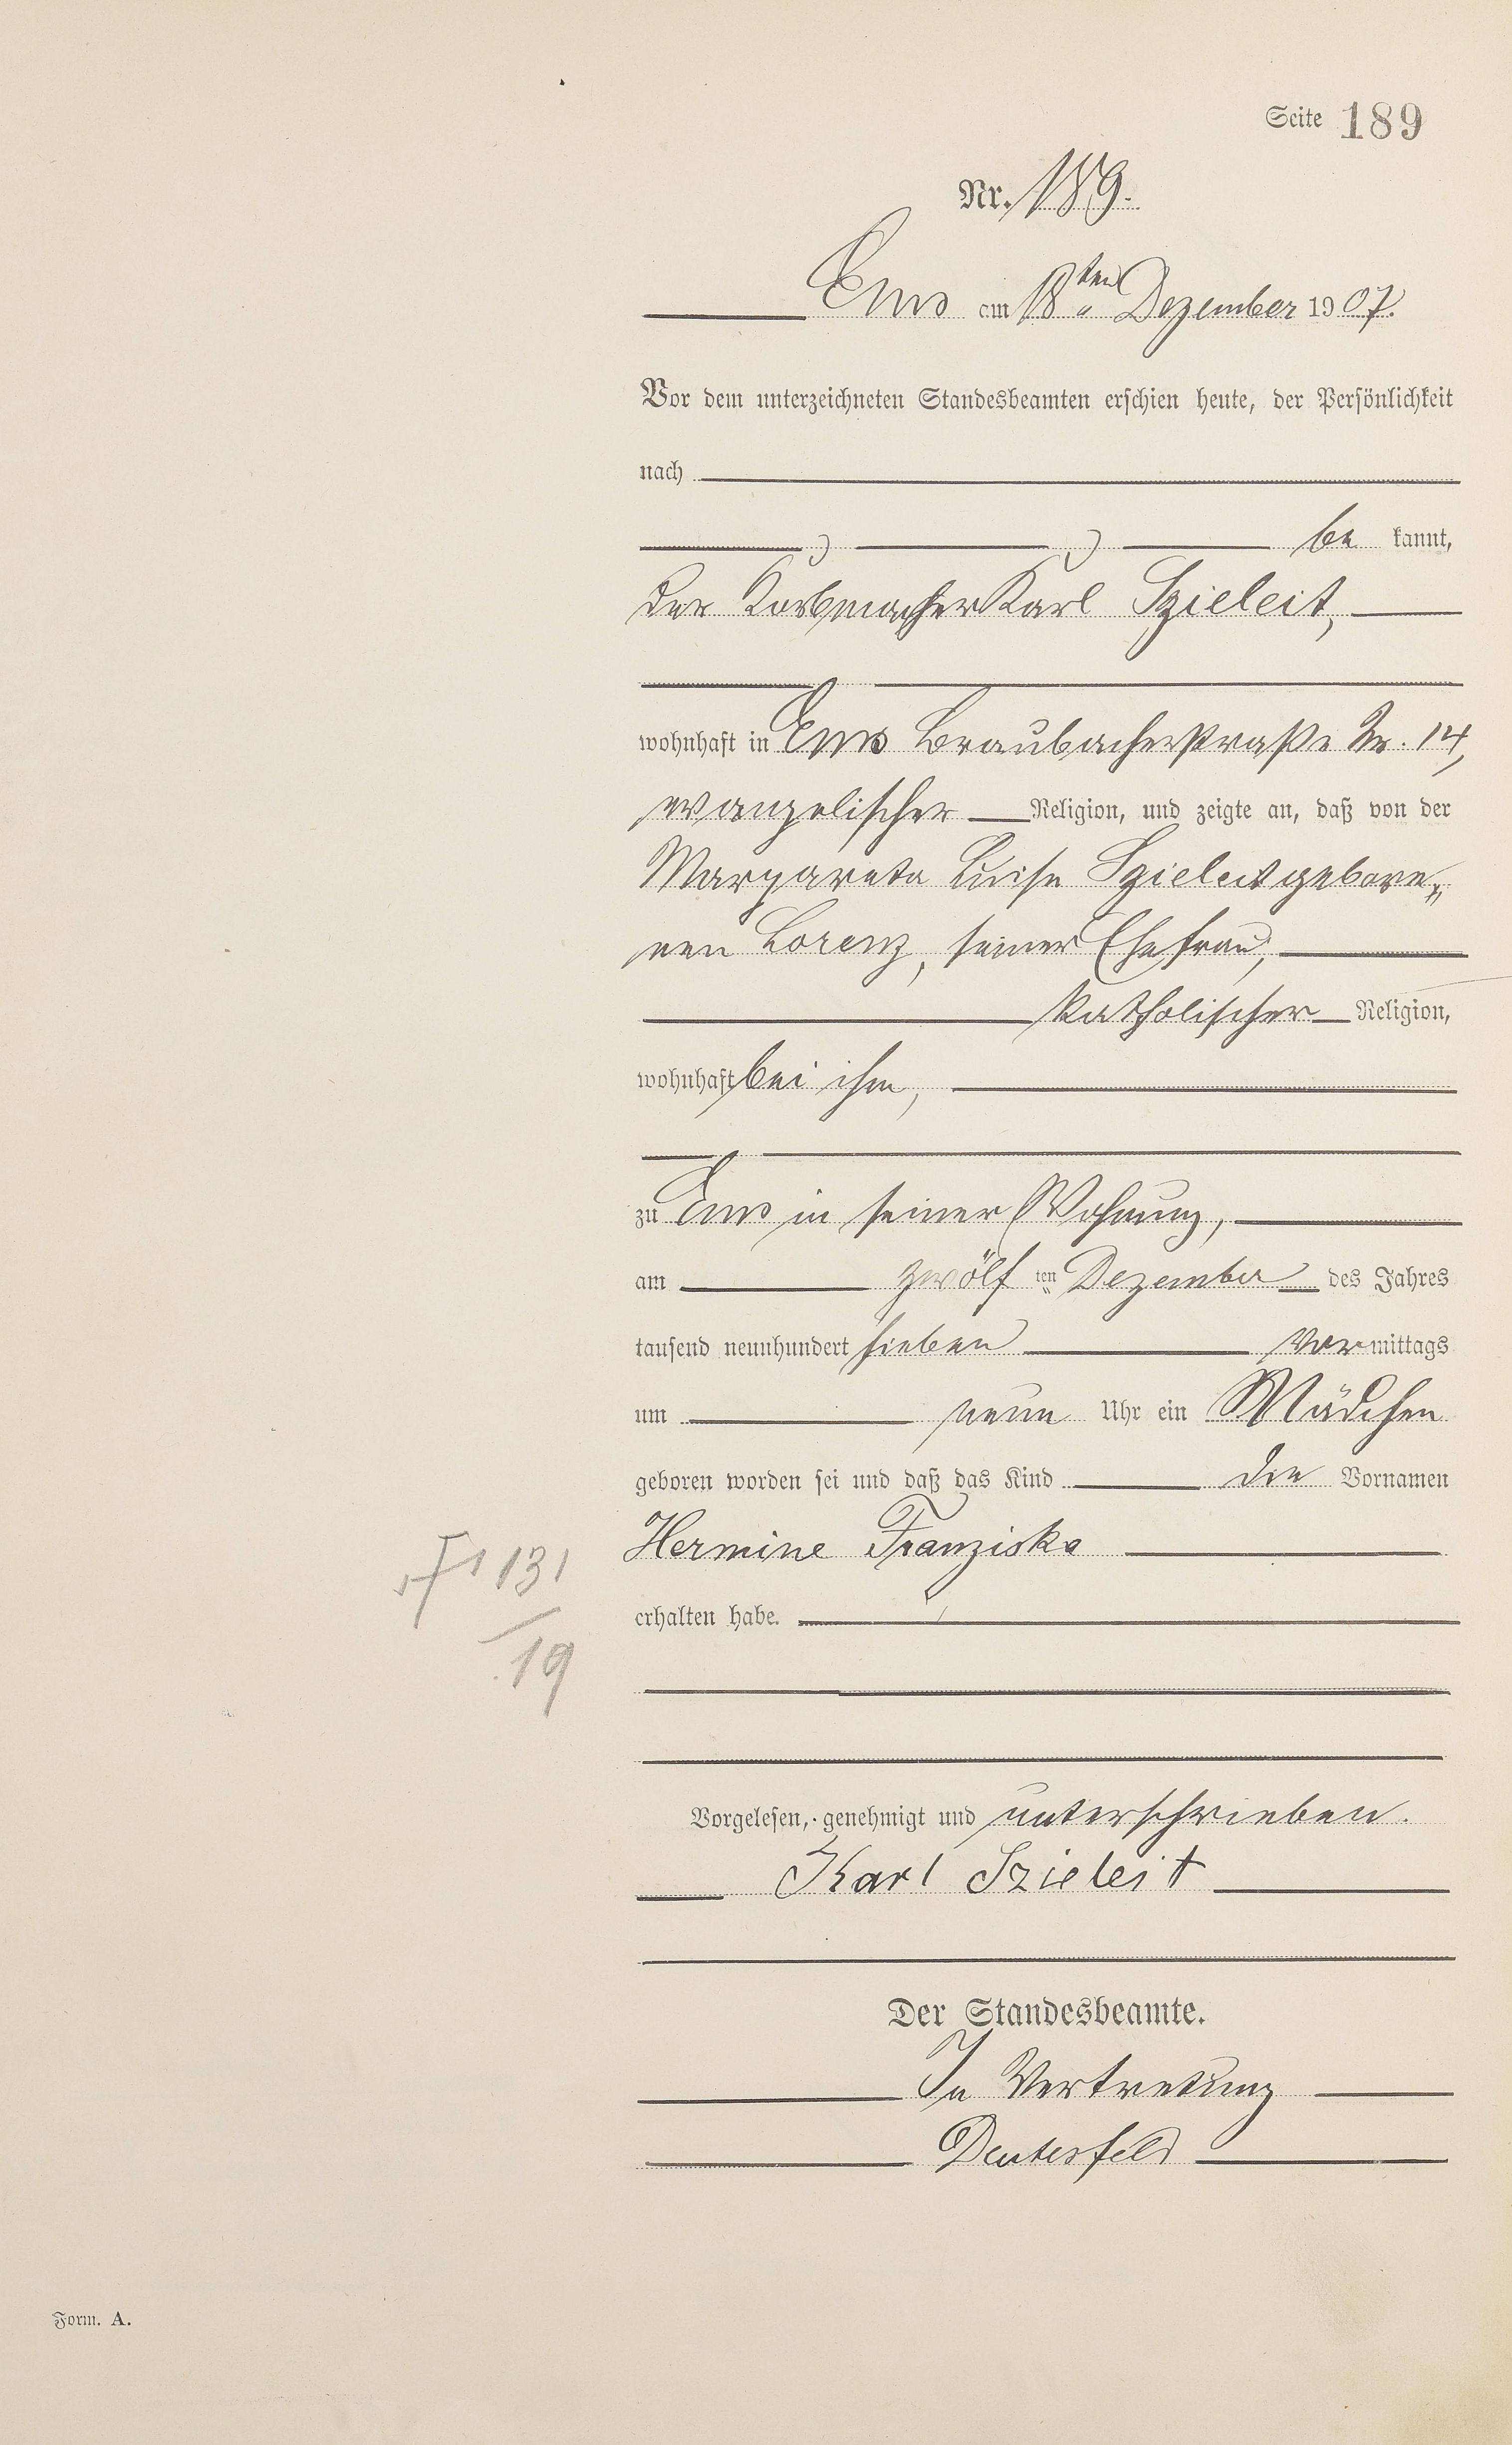 Seite 189
Nr. 189.
Ems am 18ten Dezember 1907.
Vor dem unterzeichneten Standesbeamten erschien heute, der Persönlichkeit
nach
be kannt,
der Korbmacher Karl Szieleit,
wohnhaft in Ems Braubacherstraße Nr. 14,
evangelischer Religion, und zeigte an, daß von der
Margareta Luise Szieleit gebore„
nen Lorenz, seiner Ehefrau,
katholischer Religion,
wohnhaft bei ihm,
zu Ems in seiner Wohnung,
am zwölf ten Dezember des Jahres
tausend neunhundert sieben Vormittags
um neun Uhr ein Mädchen
geboren worden sei und daß das Kind die Vornamen
Hermine Franziska
131
erhalten habe.
19
Vorgelesen, genehmigt und unterschrieben.
Karl Szieleit
Der Standesbeamte.
In Vertretung
Form. A.